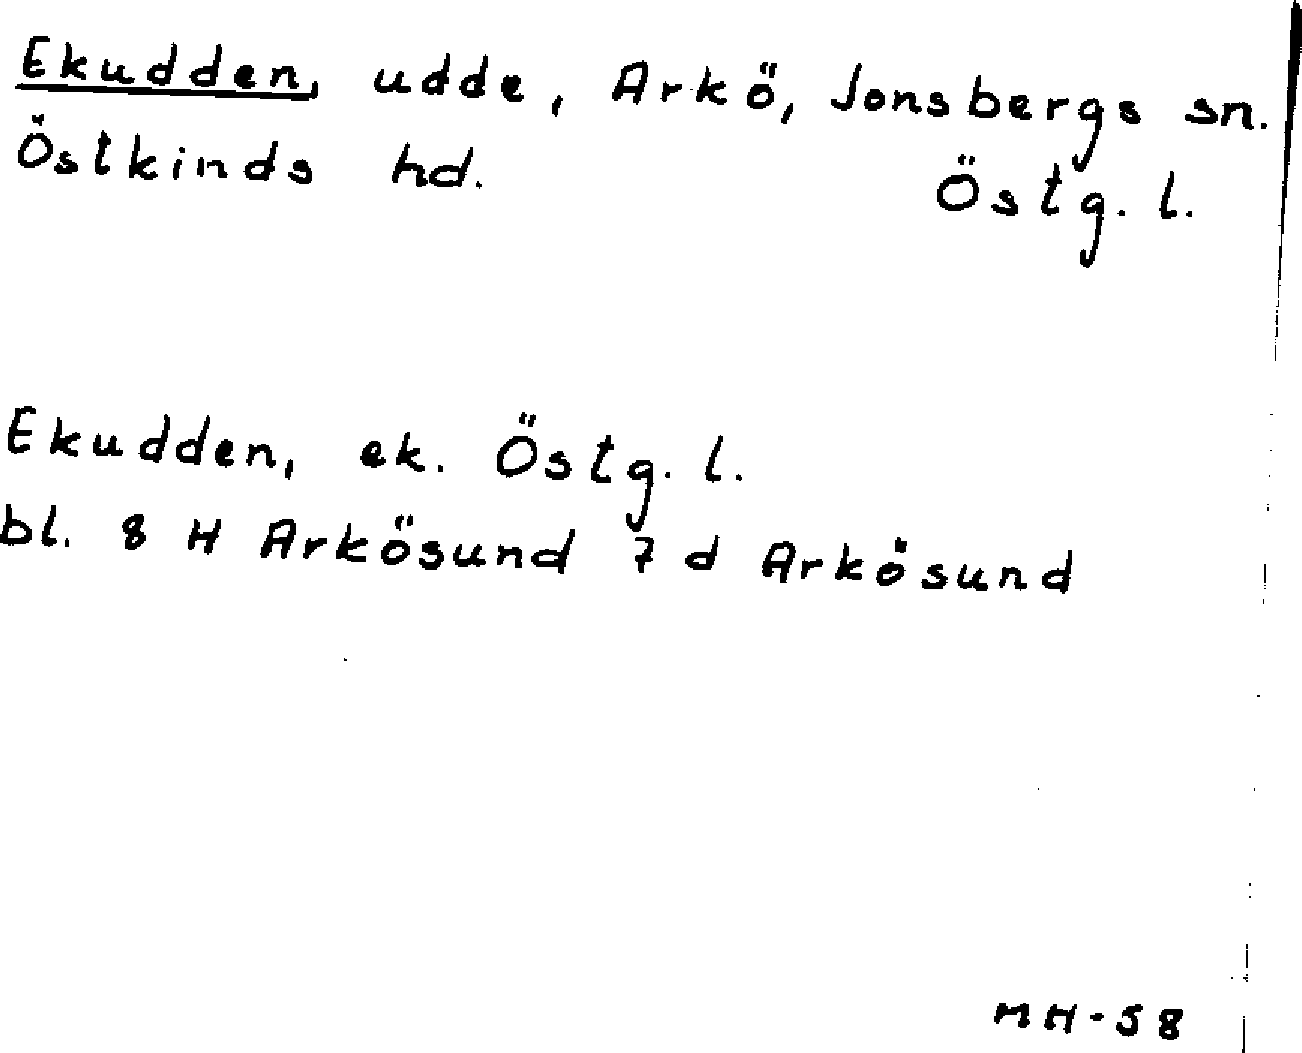 Ekudden, udde, Arkö, Jonsbergs sn.
Östkinds hd. Östg. l.
Ekudden, ek. Östg. l.
bl. 8 H Arkösund 7 d Arkösund
MH-58